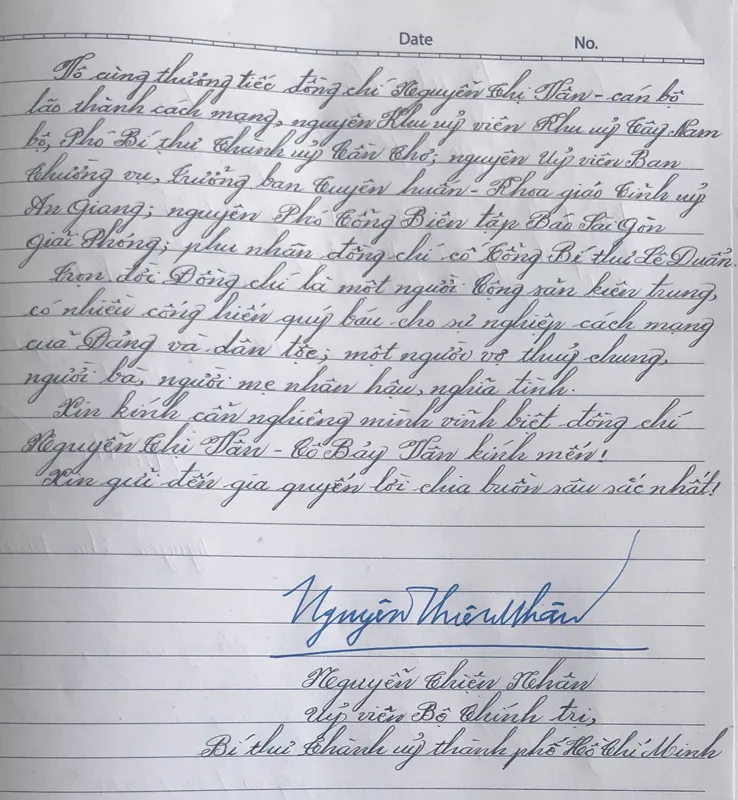 Date No.
Vô cùng thương tiếc đồng chí Nguyễn Thị Vân - cán bộ
lão thành cách mạng, nguyên Khu uỷ viên Khu uỷ Tây Nam
bộ, Phó Bí thư Thành uỷ Cần Thơ; nguyên Uỷ viên Ban
Thường vụ, Trưởng ban Tuyên huấn - Khoa giáo Tỉnh uỷ
An Giang; nguyên Phó Tổng Biên tập Báo Sài Gòn
Giải Phóng; phu nhân đồng chí cố Tổng Bí thư Lê Duẩn.
Trọn đời Đồng chí là một người Cộng sản kiên trung,
có nhiều cống hiến quý báu cho sự nghiệp cách mạng
của Đảng và dân tộc; một người vợ thuỷ chung,
người bà, người mẹ nhân hậu, nghĩa tình.
Xin kính cẩn nghiêng mình vĩnh biệt đồng chí
Nguyễn Thị Vân - Cô Bảy Vân kính mến!
Xin gửi đến gia quyến lời chia buồn sâu sắc nhất!
Nguyễn Thiện Nhân
Nguyễn Thiện Nhân
Uỷ viên Bộ Chính trị,
Bí thư Thành uỷ thành phố Hồ Chí Minh